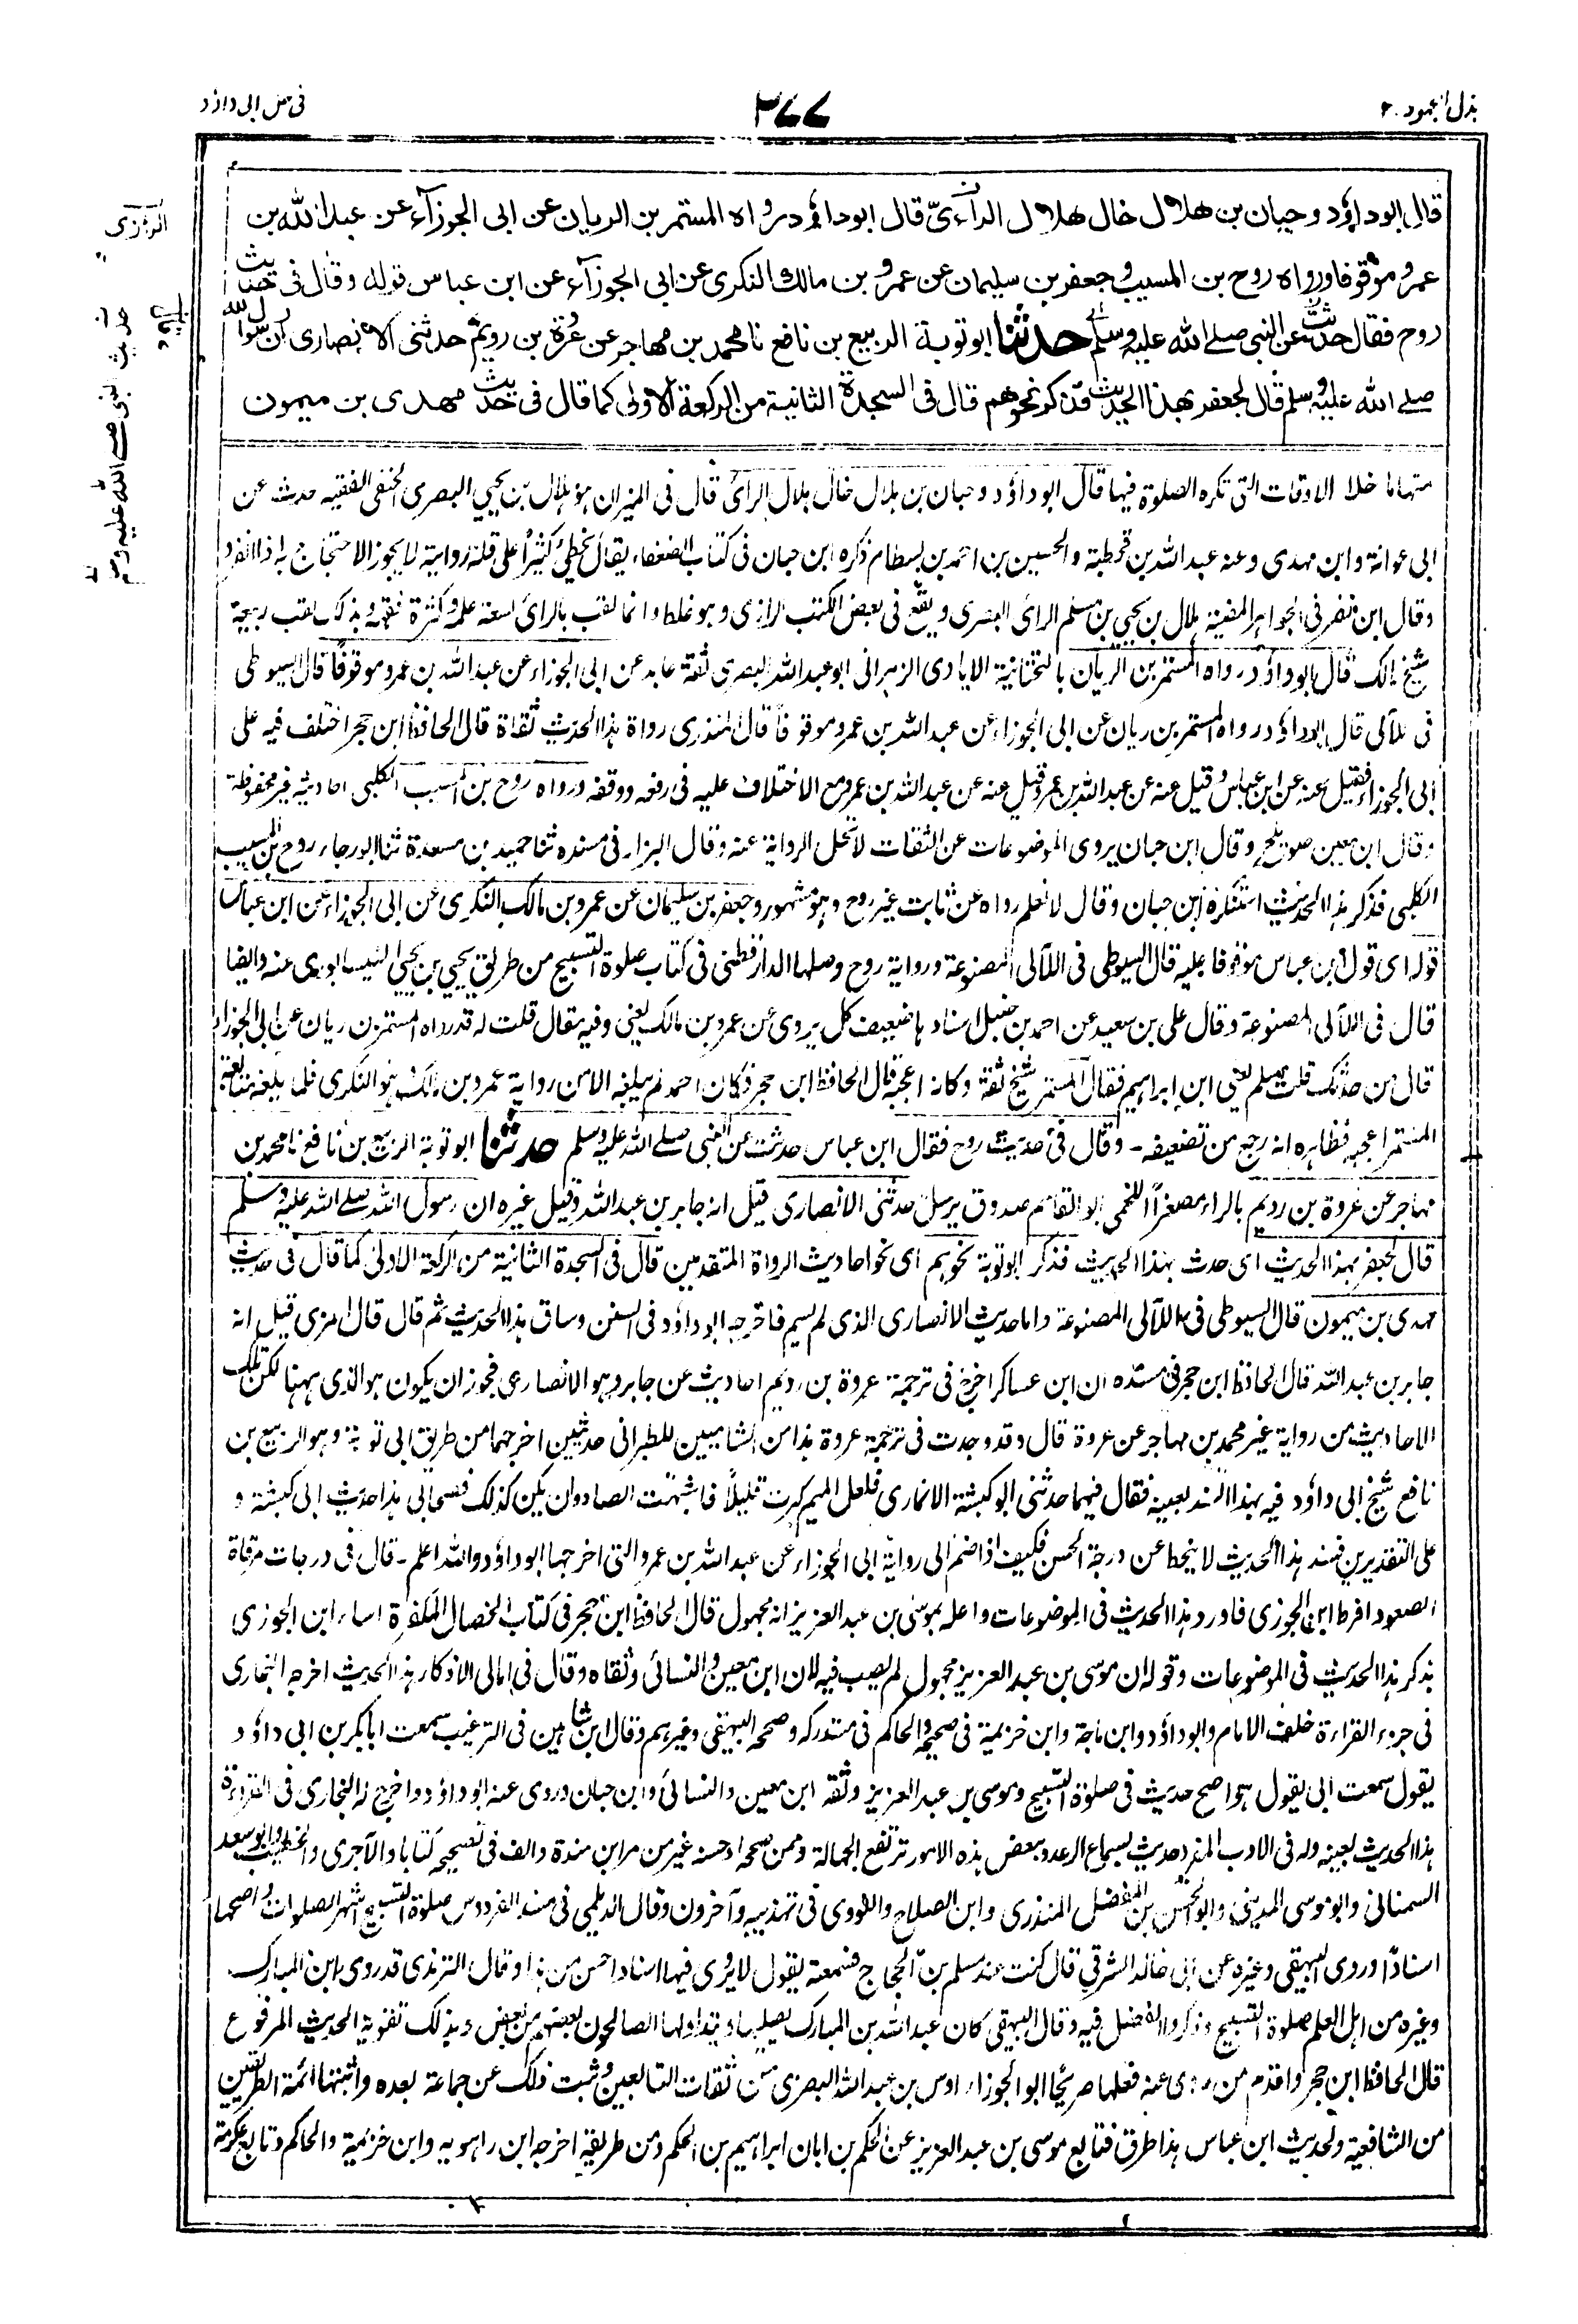 بذل المجهود
٢٧٧
في حل ابي داؤد
قال ابو داؤد وحبان بن هلال خال هلال الرائيّ قال ابو داؤد رواه المستمر بن الريان عن ابى الجوزآء عن عبد الله بن
عمرو موقوفا ورواه روح بن المسيب وجعفر بن سليمان عن عمرو بن مالك النكرى عن ابى الجوزآء عن ابن عباس قوله وقال فى حديث
روح فقال حديث عن النبى صلے الله عليه وسلم حدثنا ابو توبة الربيع بن نافع نا محمد بن مهاجر عن عروة بن رويم حدثنى الانصارى ان رسول الله
صلے الله عليه وسلم قال لجعفر بهذا الحديث فذكر نحوهم قال فى السجدة الثانية من الركعة الاولى كما قال فى حديث مهدى بن ميمون
الرازى
حديث النبى صلے الله عليه وسلم
منها ما خلا الاوقات التى تكره الصلوة فيها قال ابو داؤد وحبان بن هلال خال هلال الرائ قال فى الميزان هو هلال بن يحيى البصرى الحنفى الفقيه حدث عن
ابى عوانة وابن مهدى وعنه عبد الله بن قحطبة والحسين بن احمد بن بسطام ذكره ابن حبان فى كتاب الضعفاء يقال يخطئ كثيراً على قلة رواية لا يجوز الاحتجاج به اذا انفرد
وقال ابن فى الجواهر المضية هلال بن يحيى بن مسلم الرائ البصرى ويقع فى بعض الكتب الرازى وهو غلط وانما لقب بالرائ لسعة علمه وكثرة فقهه وبذلك لقب ربيعة
شيخ مالك قال ابو داؤد رواه المستمر بن الريان بالتحتانية الايادى الزهرانى ابو عبد الله البصرى ثقة عابد عن ابى الجوزاء عن عبد الله بن عمرو موقوفاً قال السيوطى
فى اللآلى قال ابو داؤد رواه المستمر بن ريان عن ابى الجوزاء عن عبد الله بن عمرو موقوفاً قال المنذرى رواة هذا الحديث ثقاة قال الحافظ ابن حجر اختلف فيه على
ابى الجوزاء فقيل عنه عن ابن عباس وقيل عنه عن عبد الله بن عمرو وقيل عنه عن عبد الله بن عمر مع الاختلاف عليه فى رفعه ووقفه ورواه روح بن المسيب الكلبى احاديثه غير محفوظة
وقال ابن معين صويلح وقال ابن حبان يروى الموضوعات عن الثقات لا تحل الرواية عنه وقال البزار فى مسنده ثنا حميد بن مسعدة ثنا ابو رجاء روح بن المسيب
الكلبى فذكر هذا الحديث استنكره ابن حبان وقال لا نعلم رواه عن ثابت غير روح وهو مشهور وجعفر بن سليمان عن عمرو بن مالك النكرى عن ابى الجوزاء عن ابن عباس
قوله اى قول ابن عباس موقوفا عليه قال السيوطى فى اللآلى المصنوعة ورواية روح وصلها الدارقطنى فى كتاب صلوة التسبيح من طريق يحيى بن يحيى النيسابورى عنه وايضا
قال فى اللآلى المصنوعة وقال على بن سعيد عن احمد بن حنبل اسنادها ضعيف كل يروى عن عمرو بن مالك يعنى وفيه مقال قلت له قد رواه المستمر بن ريان عن ابى الجوزاء
قال من حدثك قلت مسلم يعنى ابن ابراهيم فقال المستمر شيخ ثقة وكانه اعجبه قال الحافظ ابن حجر فكان احمد لم يبلغه الا من رواية عمرو بن مالك هو النكرى فلما بلغه متابعة
المستمر اعجبه فظاهره انه رجع من تضعيفه۔ وقال فى حديث روح فقال ابن عباس حدثت عن النبى صلے الله عليه وسلم حدثنا ابو توبة الربيع بن نافع نا محمد بن
مهاجر عن عروة بن رويم بالراء مصغراً اللخمى ابو القاسم صدوق يرسل حدثنى الانصارى قيل انه جابر بن عبد الله وقيل غيره ان رسول الله صلے الله عليه وسلم
قال لجعفر بهذا الحديث اى حدث بهذا الحديث فذكر ابو توبة نحوهم اى نحو احاديث الرواة المتقدمين قال فى السجدة الثانية من الركعة الاولى كما قال فى حديث
مهدى بن ميمون قال السيوطى فى اللآلى المصنوعة واما حديث الانصارى الذى لم يسم فاخرجه ابو داؤد فى السنن وساق هذا الحديث ثم قال قال المزى قيل انه
جابر بن عبد الله قال الحافظ ابن حجر فى مسنده ان ابن عساكر اخرج فى ترجمة عروة بن رويم احاديث عن جابر وهو الانصارى فجوز ان يكون هو الذى ههنا لكن تلك
الاحاديث من رواية غير محمد بن مهاجر عن عروة قال وقد وجدت فى ترجمة عروة هذا من الشاميين للطبرانى حديثين اخرجهما من طريق ابى توبة وهو الربيع بن
نافع شيخ ابى داؤد فيه بهذا السند بعينه فقال فيهما حدثنى ابو كبشة الانمارى فلعل الميم كبرت قليلاً فاشبهت الصاد وان يكن كذلك فصحابى هذا حديث ابى كبشة و
على التقديرين فسند هذا الحديث لا ينحط عن درجة الحسن فكيف اذا ضم الى رواية ابى الجوزاء عن عبد الله بن عمرو التى اخرجها ابو داؤد والله اعلم۔ قال فى درجات مرقاة
الصعود افرط ابن الجوزى فاورد هذا الحديث فى الموضوعات واعله بموسى بن عبد العزيز انه مجهول قال الحافظ ابن حجر فى كتاب الخصال المكفرة اساء ابن الجوزى
بذكر هذا الحديث فى الموضوعات وقوله ان موسى بن عبد العزيز مجهول لم يصب فيه لان ابن معين والنسائى وثقاه وقال فى امالى الاذكار هذا الحديث اخرجه البخارى
فى جزء القراءة خلف الامام وابو داؤد وابن ماجة وابن خزيمة فى صحيحه والحاكم فى مستدركه وصححه البيهقى وغيرهم وقال ابن شاهين فى الترغيب سمعت ابا بكر بن ابى داؤد
يقول سمعت ابى يقول هو اصح حديث فى صلوة التسبيح وموسى بن عبد العزيز وثقه ابن معين والنسائى وابن حبان وروى عنه ابو داؤد واخرج له البخارى فى القراءة
هذا الحديث بعينه وله فى الادب المفرد حديث بسماع الرعد وبعض هذه الامور ترتفع الجهالة وممن صححه او حسنه غير من مر ابن مندة والف فى تصحيحه كتابا والآجرى والخطيب وابو سعد
السمعانى وابو موسى المدينى وابو الحسن بن المفضل المنذرى وابن الصلاح والنووى فى تهذيبه وآخرون وقال الديلمى فى مسند الفردوس صلوة التسبيح اشهر الصلوات واصحها
اسناداً وروى البيهقى وغيره عن ابى حامد الشرقى قال كنت عند مسلم بن الحجاج فسمعته يقول لا يروى فيها اسناد احسن من هذا وقال الترمذى قد روى ابن المبارك
وغيره من اهل العلم صلوة التسبيح وذكروا الفضل فيه وقال البيهقى كان عبد الله بن المبارك يصليها وتداولها الصالحون بعضهم من بعض وبذلك تقوية الحديث المرفوع
قال الحافظ ابن حجر واقدم من روى عنه فعلها صريحا ابو الجوزاء اوس بن عبد الله البصرى من ثقات التابعين وثبت ذلك عن جماعة بعده واثبتها ائمة الطريقين
من الشافعية ولحديث ابن عباس هذا طرق فتابع موسى بن عبد العزيز عن الحكم بن ابان ابراهيم بن الحكم ومن طريقه اخرجه ابن راهويه وابن خزيمة والحاكم وتابع عكرمة